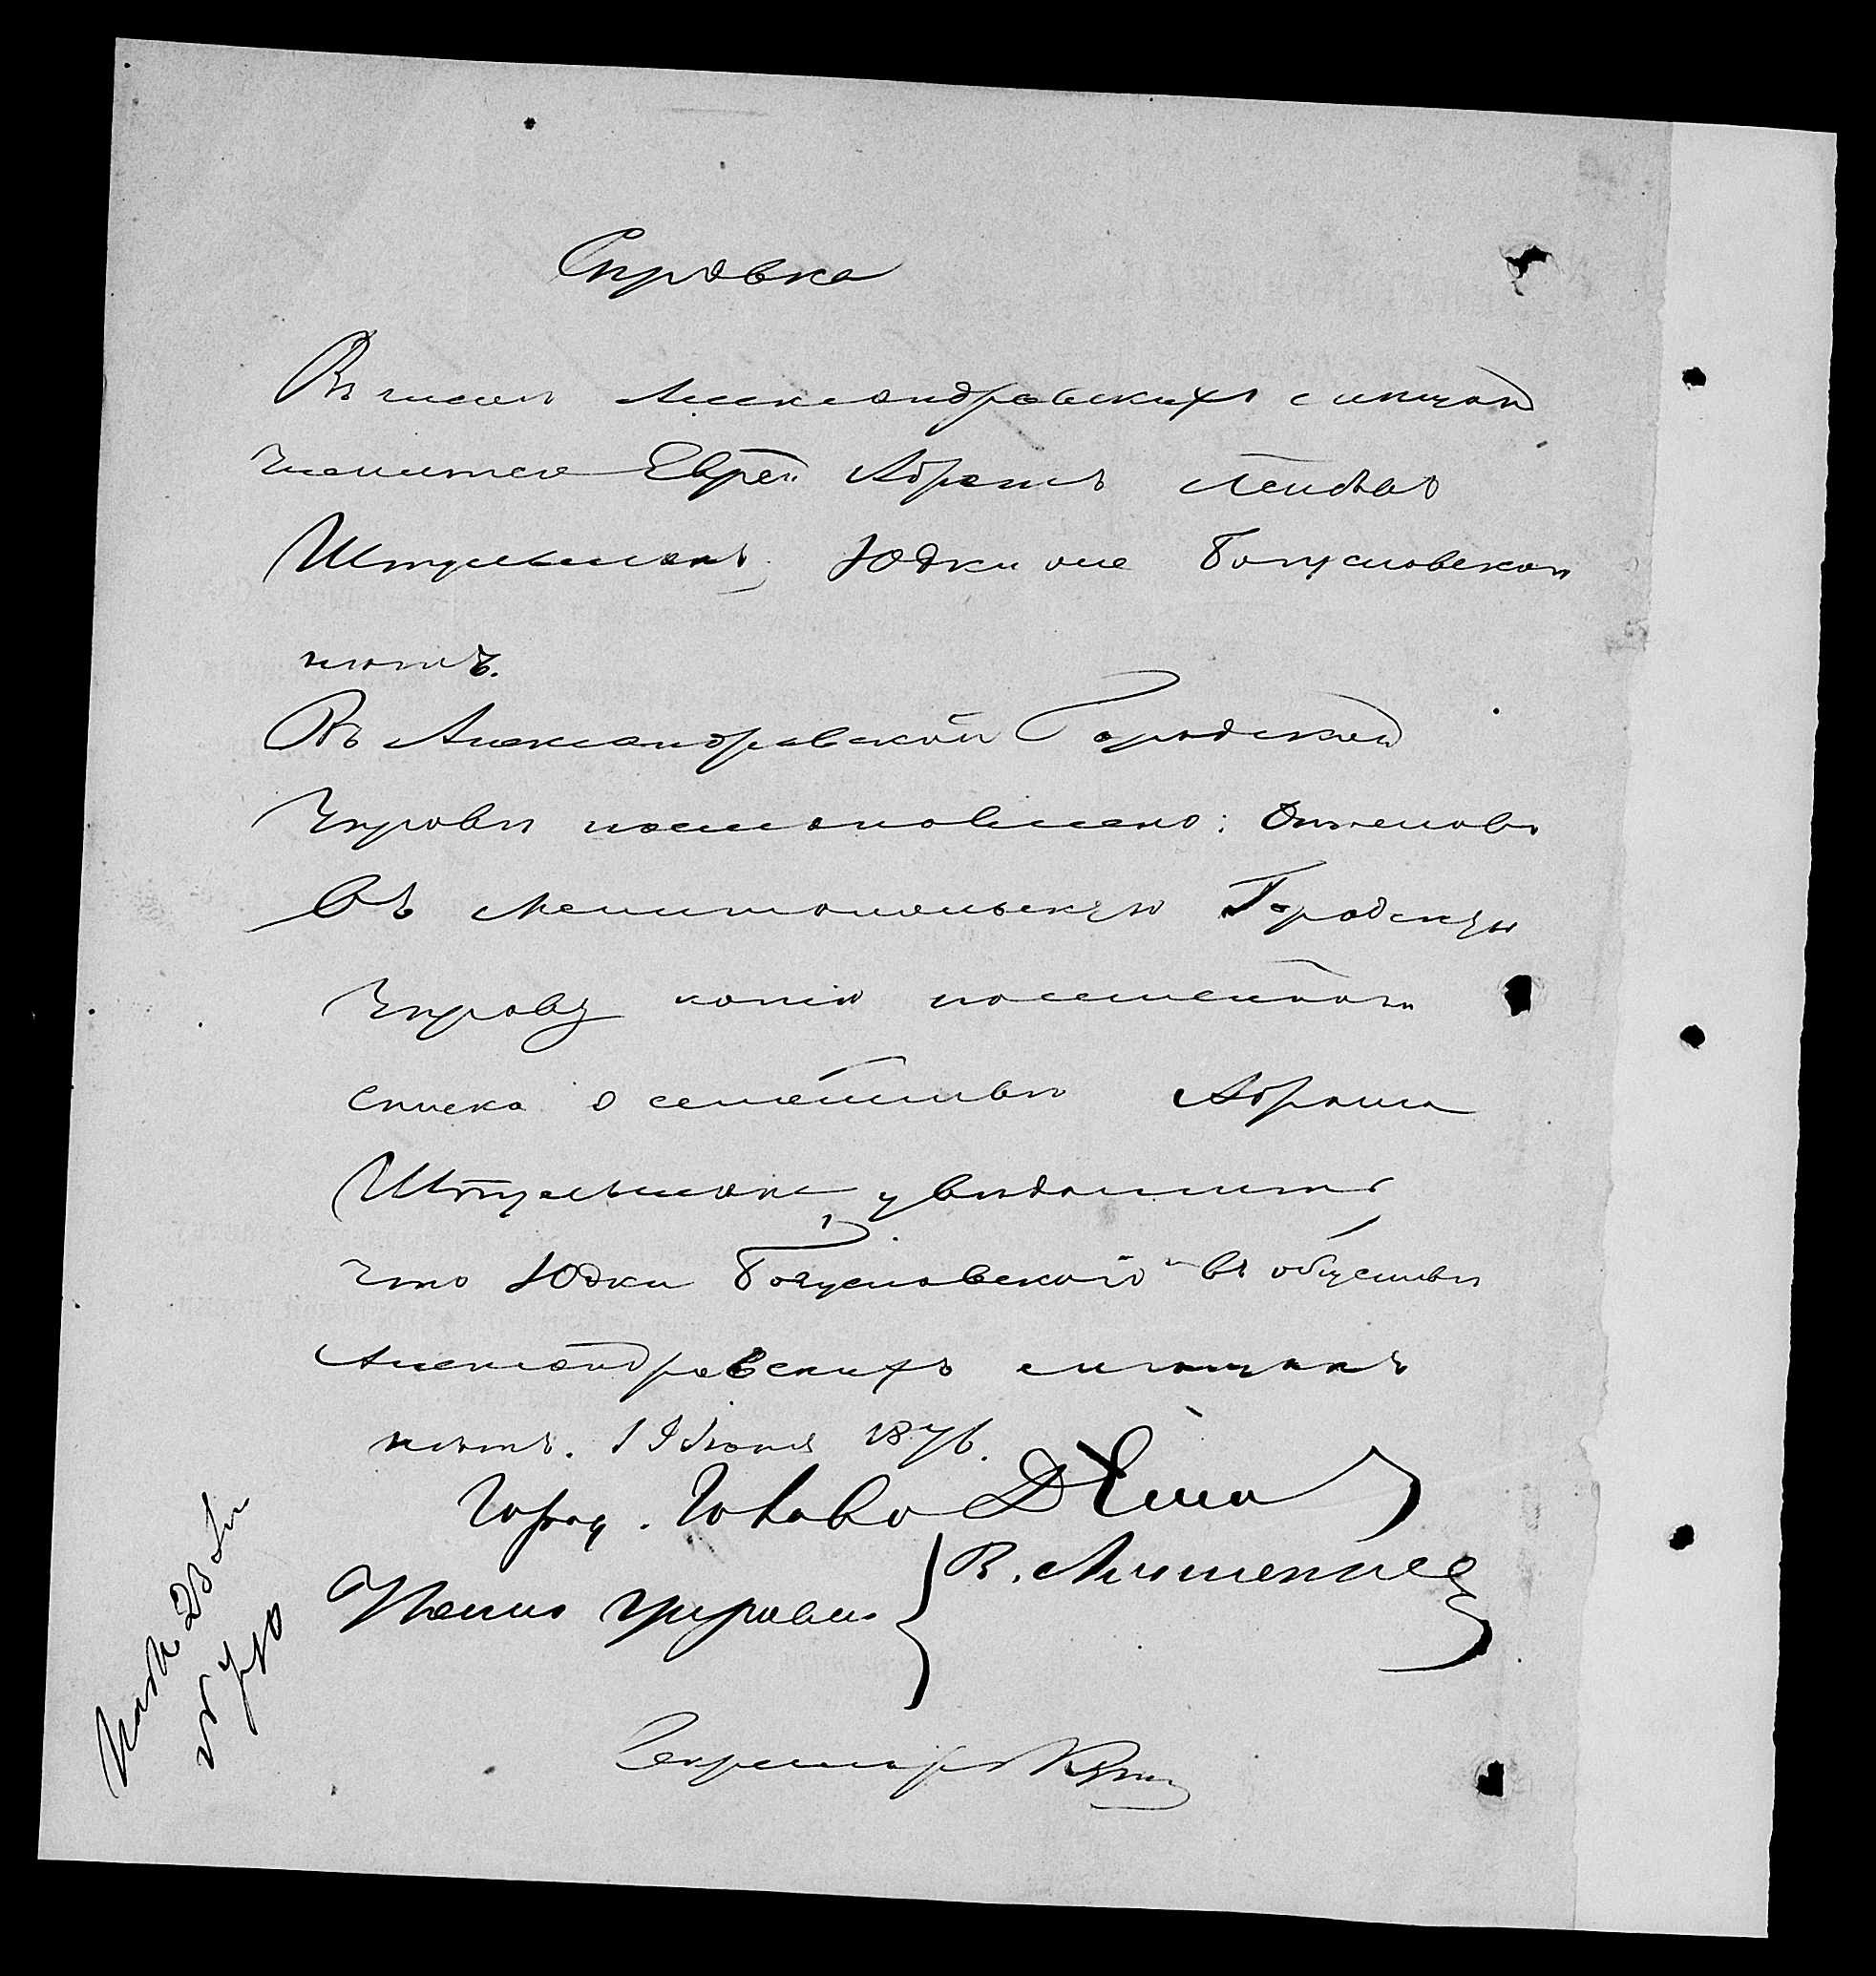 Справка
Въ числѣ Александровскихъ мѣщанъ
числится Еврей Абрамъ Лейбовъ
Штульманъ, Юдки же Богуславскаго
нѣтъ.
Въ Александровской Городской
Управѣ постановлено: Отослать
въ Мелитопольскую Городскую
Управу копію посемейнаго
списка о семействѣ Абрама
Штульмана и увѣдомить
что Юдки Богуславскаго въ обществѣ
Александровскихъ мѣщанъ
нѣтъ. 1 Іюня 1876.
Город. Голова
Члены управы В.
Секретарь